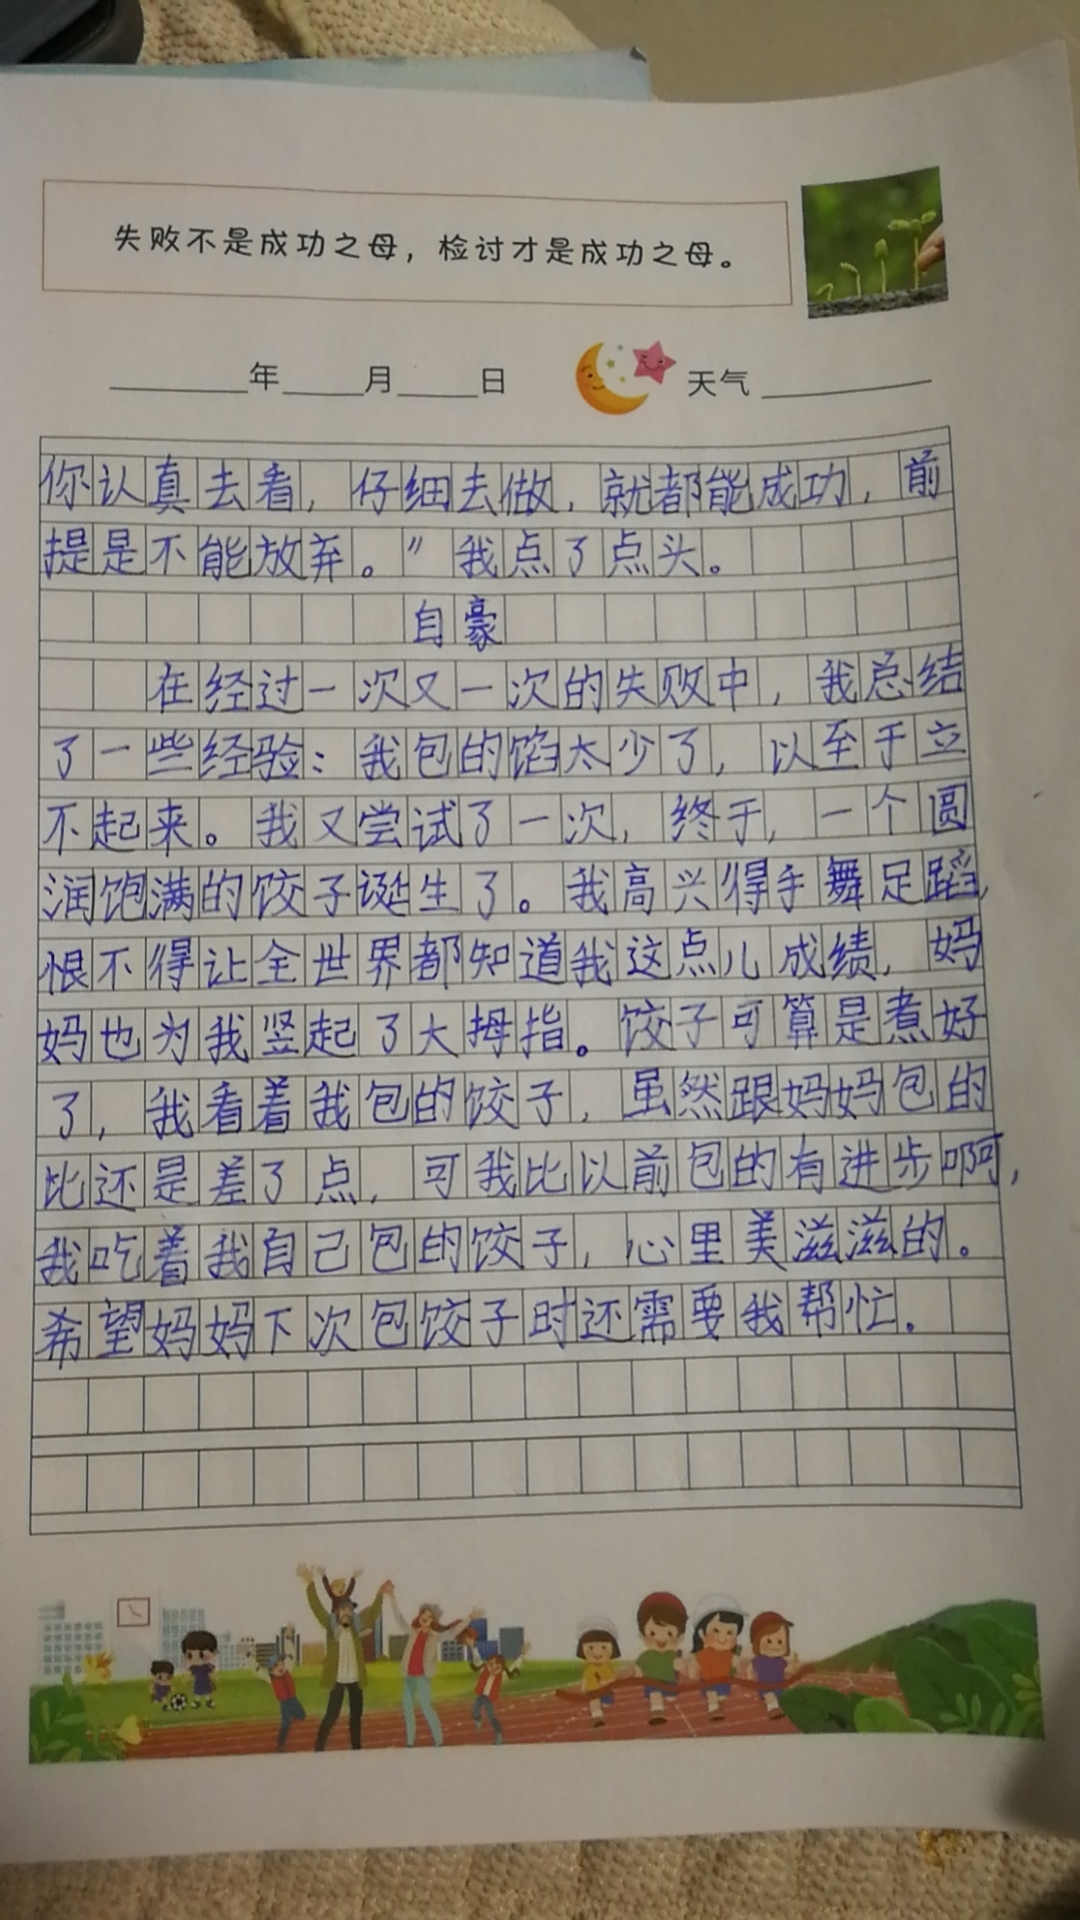 失败不是成功之母，检讨才是成功之母。
年 月 日 天气
你认真去看，仔细去做，就都能成功，前
提是不能放弃。”我点了点头。
自豪
在经过一次又一次的失败中，我总结
了一些经验：我包的馅太少了，以至于立
不起来。我又尝试了一次，终于，一个圆
润饱满的饺子诞生了。我高兴得手舞足蹈，
恨不得让全世界都知道我这点儿成绩，妈
妈也为我竖起了大拇指。饺子可算是煮好
了，我看着我包的饺子，虽然跟妈妈包的
比还是差了点，可我比以前包的有进步啊，
我吃着我自己包的饺子，心里美滋滋的。
希望妈妈下次包饺子时还需要我帮忙。